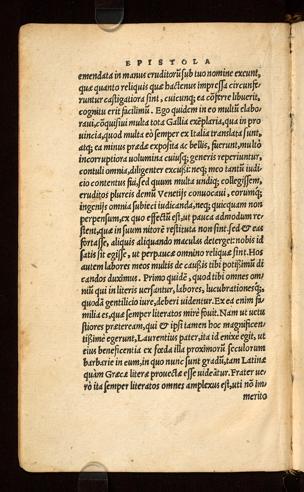 EPISTOLA
emendata in manus eruditorũ sub tuo nomine exeunt,
quæ quanto reliquis quæ hactenus impressa circunfe
runtur castigatiora sint, cuicunq; ea cõferre libuerit,
cognitu erit facilimũ. Ego quidem in eo multũ elabo
raui, cõquisiui multa tota Gallia exẽplaria, qua in pro
uincia, quod multa eò semper ex Italia translata sunt,
atq; ea minus prædæ exposita ac bellis, fuerunt, multò
incorruptiora uolumina cuiusq; generis reperiuntur,
contuli omnia, diligenter excussi: neq; meo tantũ iudi
cio contentus fui, sed quum multa undiq; collegissem,
eruditos plureis domũ Venetijs conuocaui, eorumq;
ingenijs omnia subieci iudicanda, neq; quicquam non
perpensum, ex quo effectũ est, ut pauca admodum re
stent, quæ in suum nitorē restituta non sint. sed & eas
fortasse, aliquis aliquando maculas deterget: nobis id
satis sit egisse, ut perpauca omnino reliquæ sint. Hos
autem labores meos multis de caussis tibi potissimũ di
candos duximus. Primo quidē, quod tibi omnes om-
niũ qui in literis uersantur, labores, lucubrationesq;,
quodã gentilicio iure, deberi uidentur. Ex ea enim fa
milia es, quæ semper literatos mirè fouit. Nam ut uetu
stiores præteream, qui & ipsi tamen hoc magnificen-
tissimè egerunt, Laurentius pater, ita id enixè egit, ut
eius beneficentia ex fœda illa proximorũ seculorum
barbarie in eum, in quo nunc sunt gradũ, tam Latinæ
quàm Græcæ literæ prouectæ esse uideãtur. Frater ue-
rò ita semper literatos omnes amplexus est, uti nõ im-
merito